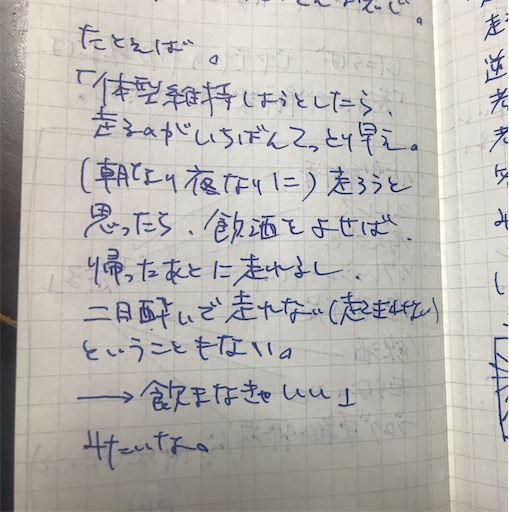 たとえば。
「体型維持しようとしたら、
走るのがいちばんてっとり早え。
(朝なり夜なりに)走ろうと
思ったら、飲酒をよせば、
帰ったあとに走れるし、
二日酔いで走れない(起きれない)
ということもない。
→飲まなきゃいい」
みたいな。